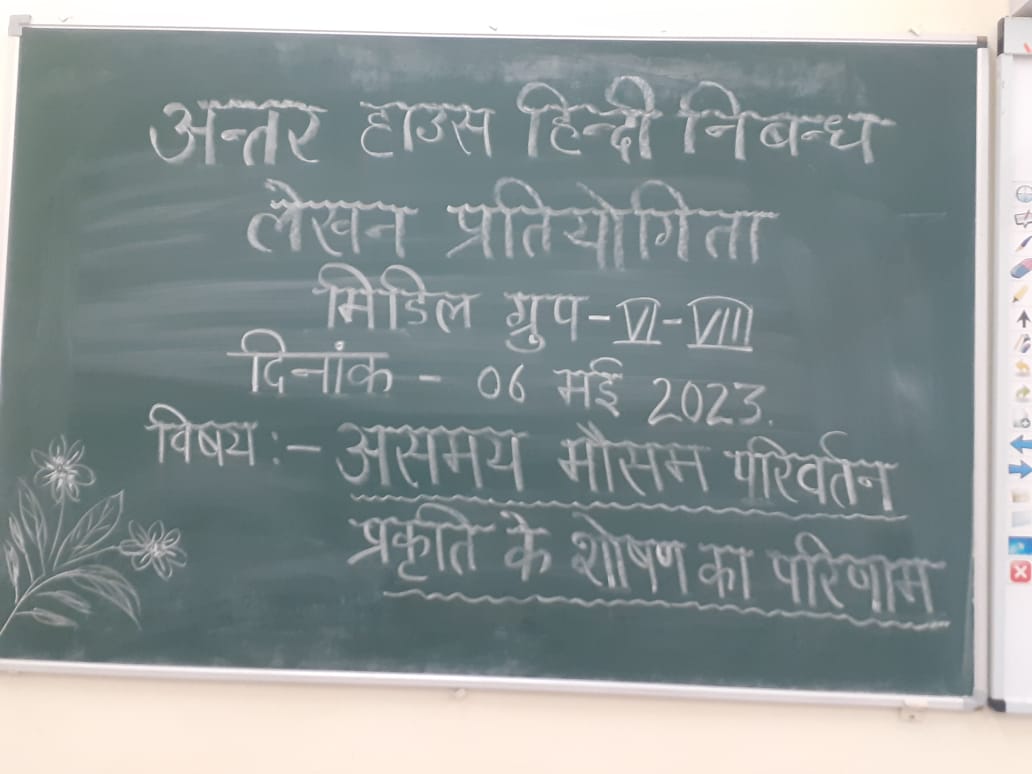 अन्तर हाउस हिन्दी निबन्ध
लेखन प्रतियोगिता
मिडिल ग्रुप - VI - VIII
दिनांक - 06 मई 2023.
विषय :- असमय मौसम परिवर्तन
प्रकृति के शोषण का परिणाम